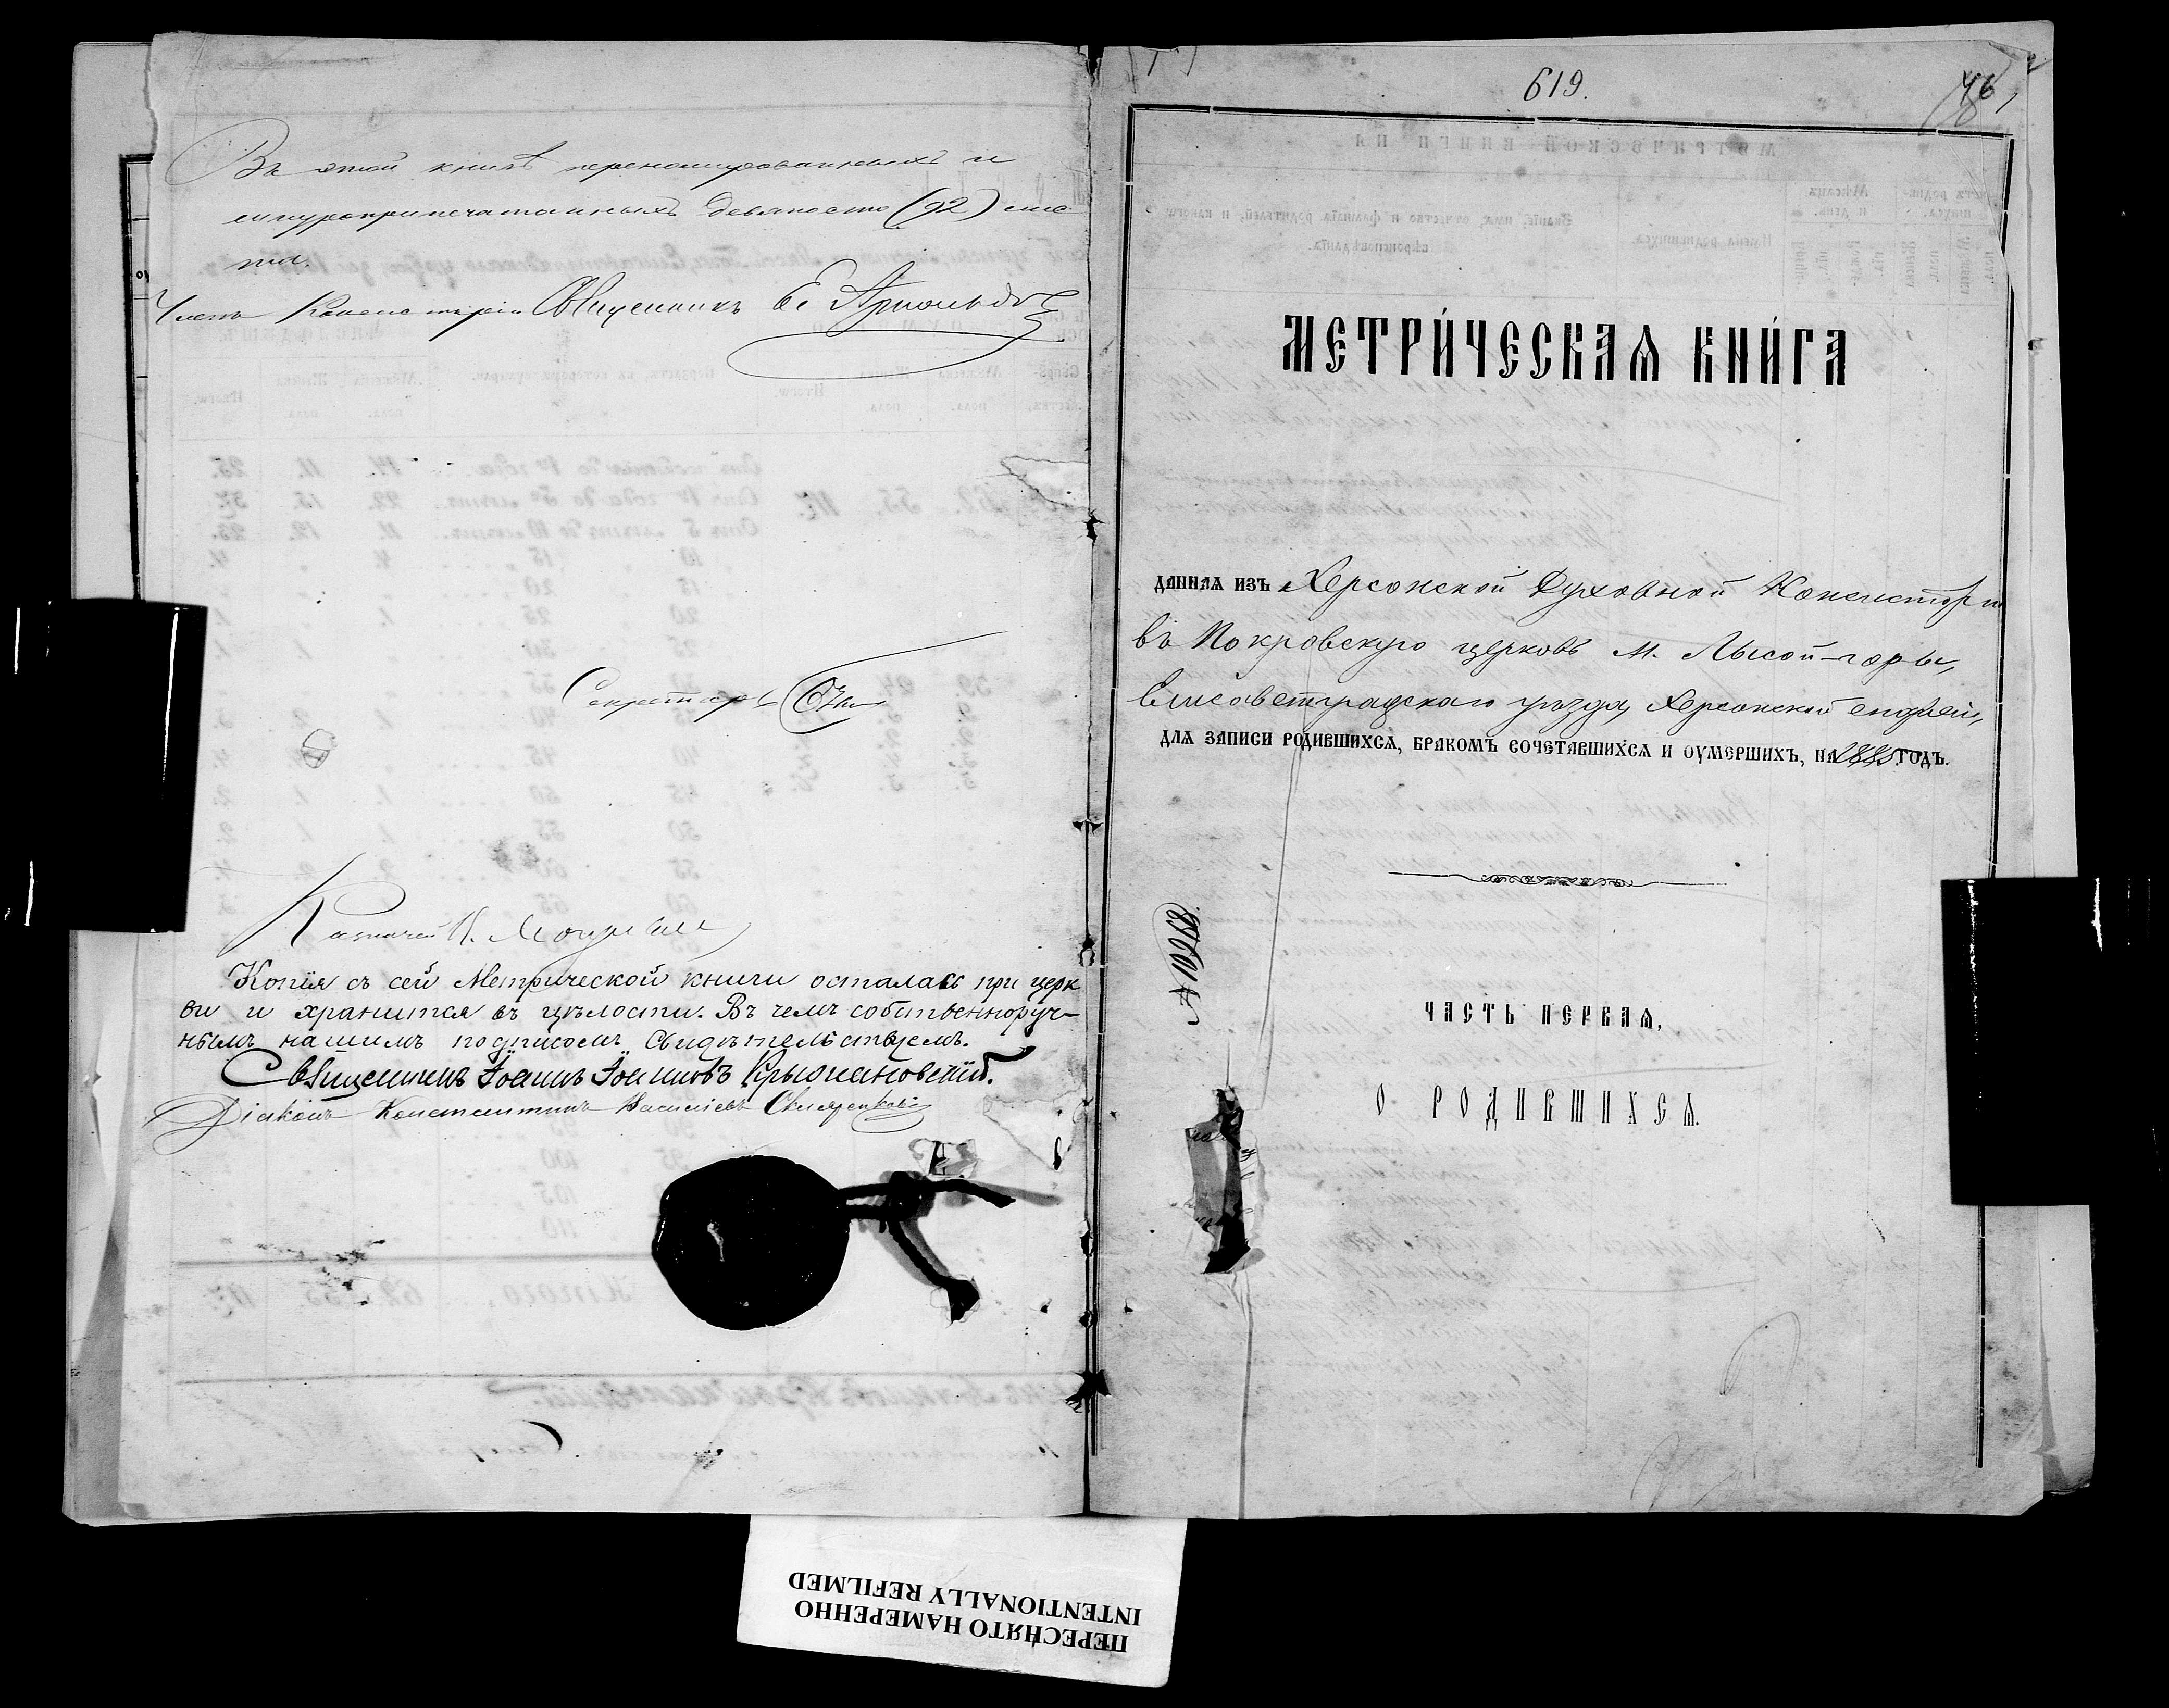 Въ этой книгѣ перенумерованныхъ и
шнуроприпечатанныхъ девяносто (92) лис
та.
Членъ Консисторіи Священникъ Е. Арнольдъ
Секретарь
Казначей Н.
Копія съ сей Метрической книги осталась при церк
ви и хранится въ цѣлости. Въ чемъ собственноруч-
нымъ нашимъ подписомъ свидѣтельствуемъ.
Священникъ Іоаннъ Іоанновъ Крыжановскій.
Діаконъ Константинъ Василіевъ
619.
46
МЕТРИ́ЧЕСКАѦ КНИ́ГА
ДАННАѦ ИЗЪ Херсонской Духовной Консисторіи
въ Покровскую церковь м. Лысой-горы,
Елисаветградскаго уѣзда, Херсонской епархіи,
ДЛѦ ЗАПИСИ РОДИВШИХСѦ, БРАКОМЪ СОЧЕТАВШИХСѦ И ОУМЕРШИХЪ, НА 1885 ГОДЪ.
№ 10668.
ЧАСТЬ ПЕРВАѦ,
О РОДИВШИХСѦ.
ПЕРЕСНЯТО НАМЕРЕННО
INTENTIONALLY REFILMED